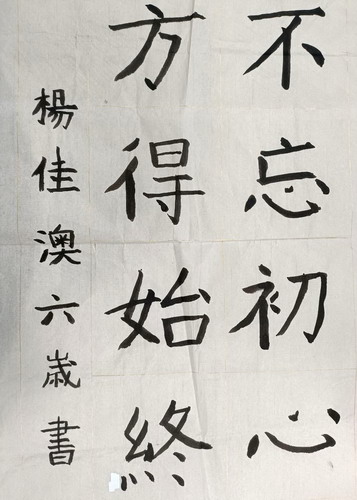 不忘初心
方得始終
楊佳澳六歲書